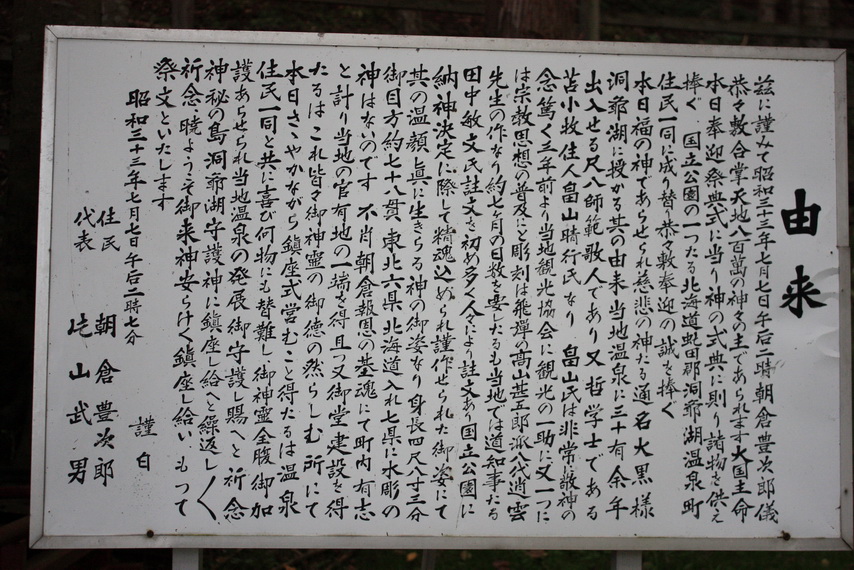 由来
茲に謹みて昭和三十三年七月七日午后二時朝倉豊次郎儀
恭々敷合掌天地八百萬の神々の主であられます大国主命
本日奉迎祭典式に当り神の式典に則り諸物を供え
捧ぐ 国立公園の一つたる北海道虻田郡洞爺湖温泉町
住民一同に成り替り恭々敷奉迎の誠を捧ぐ
本日福の神であらせられ慈悲の神たる通名大黒様
洞爺湖に授かる其の由来当地温泉に三十有余年
出入せる尺八師範歌人であり又哲学士である
苫小牧住人畠山晴行氏なり 畠山氏は非常に敬神の
念篤く三年前より当地観光協会に観光の一助に又一つに
は宗教思想の普及にと彫刻は飛驒の高山甚五郎派八代逍雲
先生の作なり約七ヶ月の日数を要したるも当地では道知事たる
田中敏文氏註文を初め多く人々により註文あり国立公園に
納神決定に際して精魂込められ謹作せられた御姿にて
其の温顔し眞に生きらる神の御姿なり身長四尺八寸三分
御目方約七十八貫 東北六県北海道入れ七県に水彫の
神はないのです 不肖朝倉報恩の基魂にて町内有志
と計り当地の官有地の一端を得且つ又御堂建設を得
たるはこれ皆々御神霊の御徳の然らしむ所にて
本日さゝやかながら鎮座式営むこと得たるは温泉
住民一同と共に喜び何物にも替難し御神霊全腹御加
護あらせられ当地温泉の発展御守護し賜へと祈念
神秘の島洞爺湖守護神に鎮座し給へと繰返し〱
祈念 暁ようこそ御来神安らけく鎮座し給い もって
祭文といたします
昭和三十三年七月七日午后二時七分
謹白
住民 朝倉豊次郎
代表 山武男